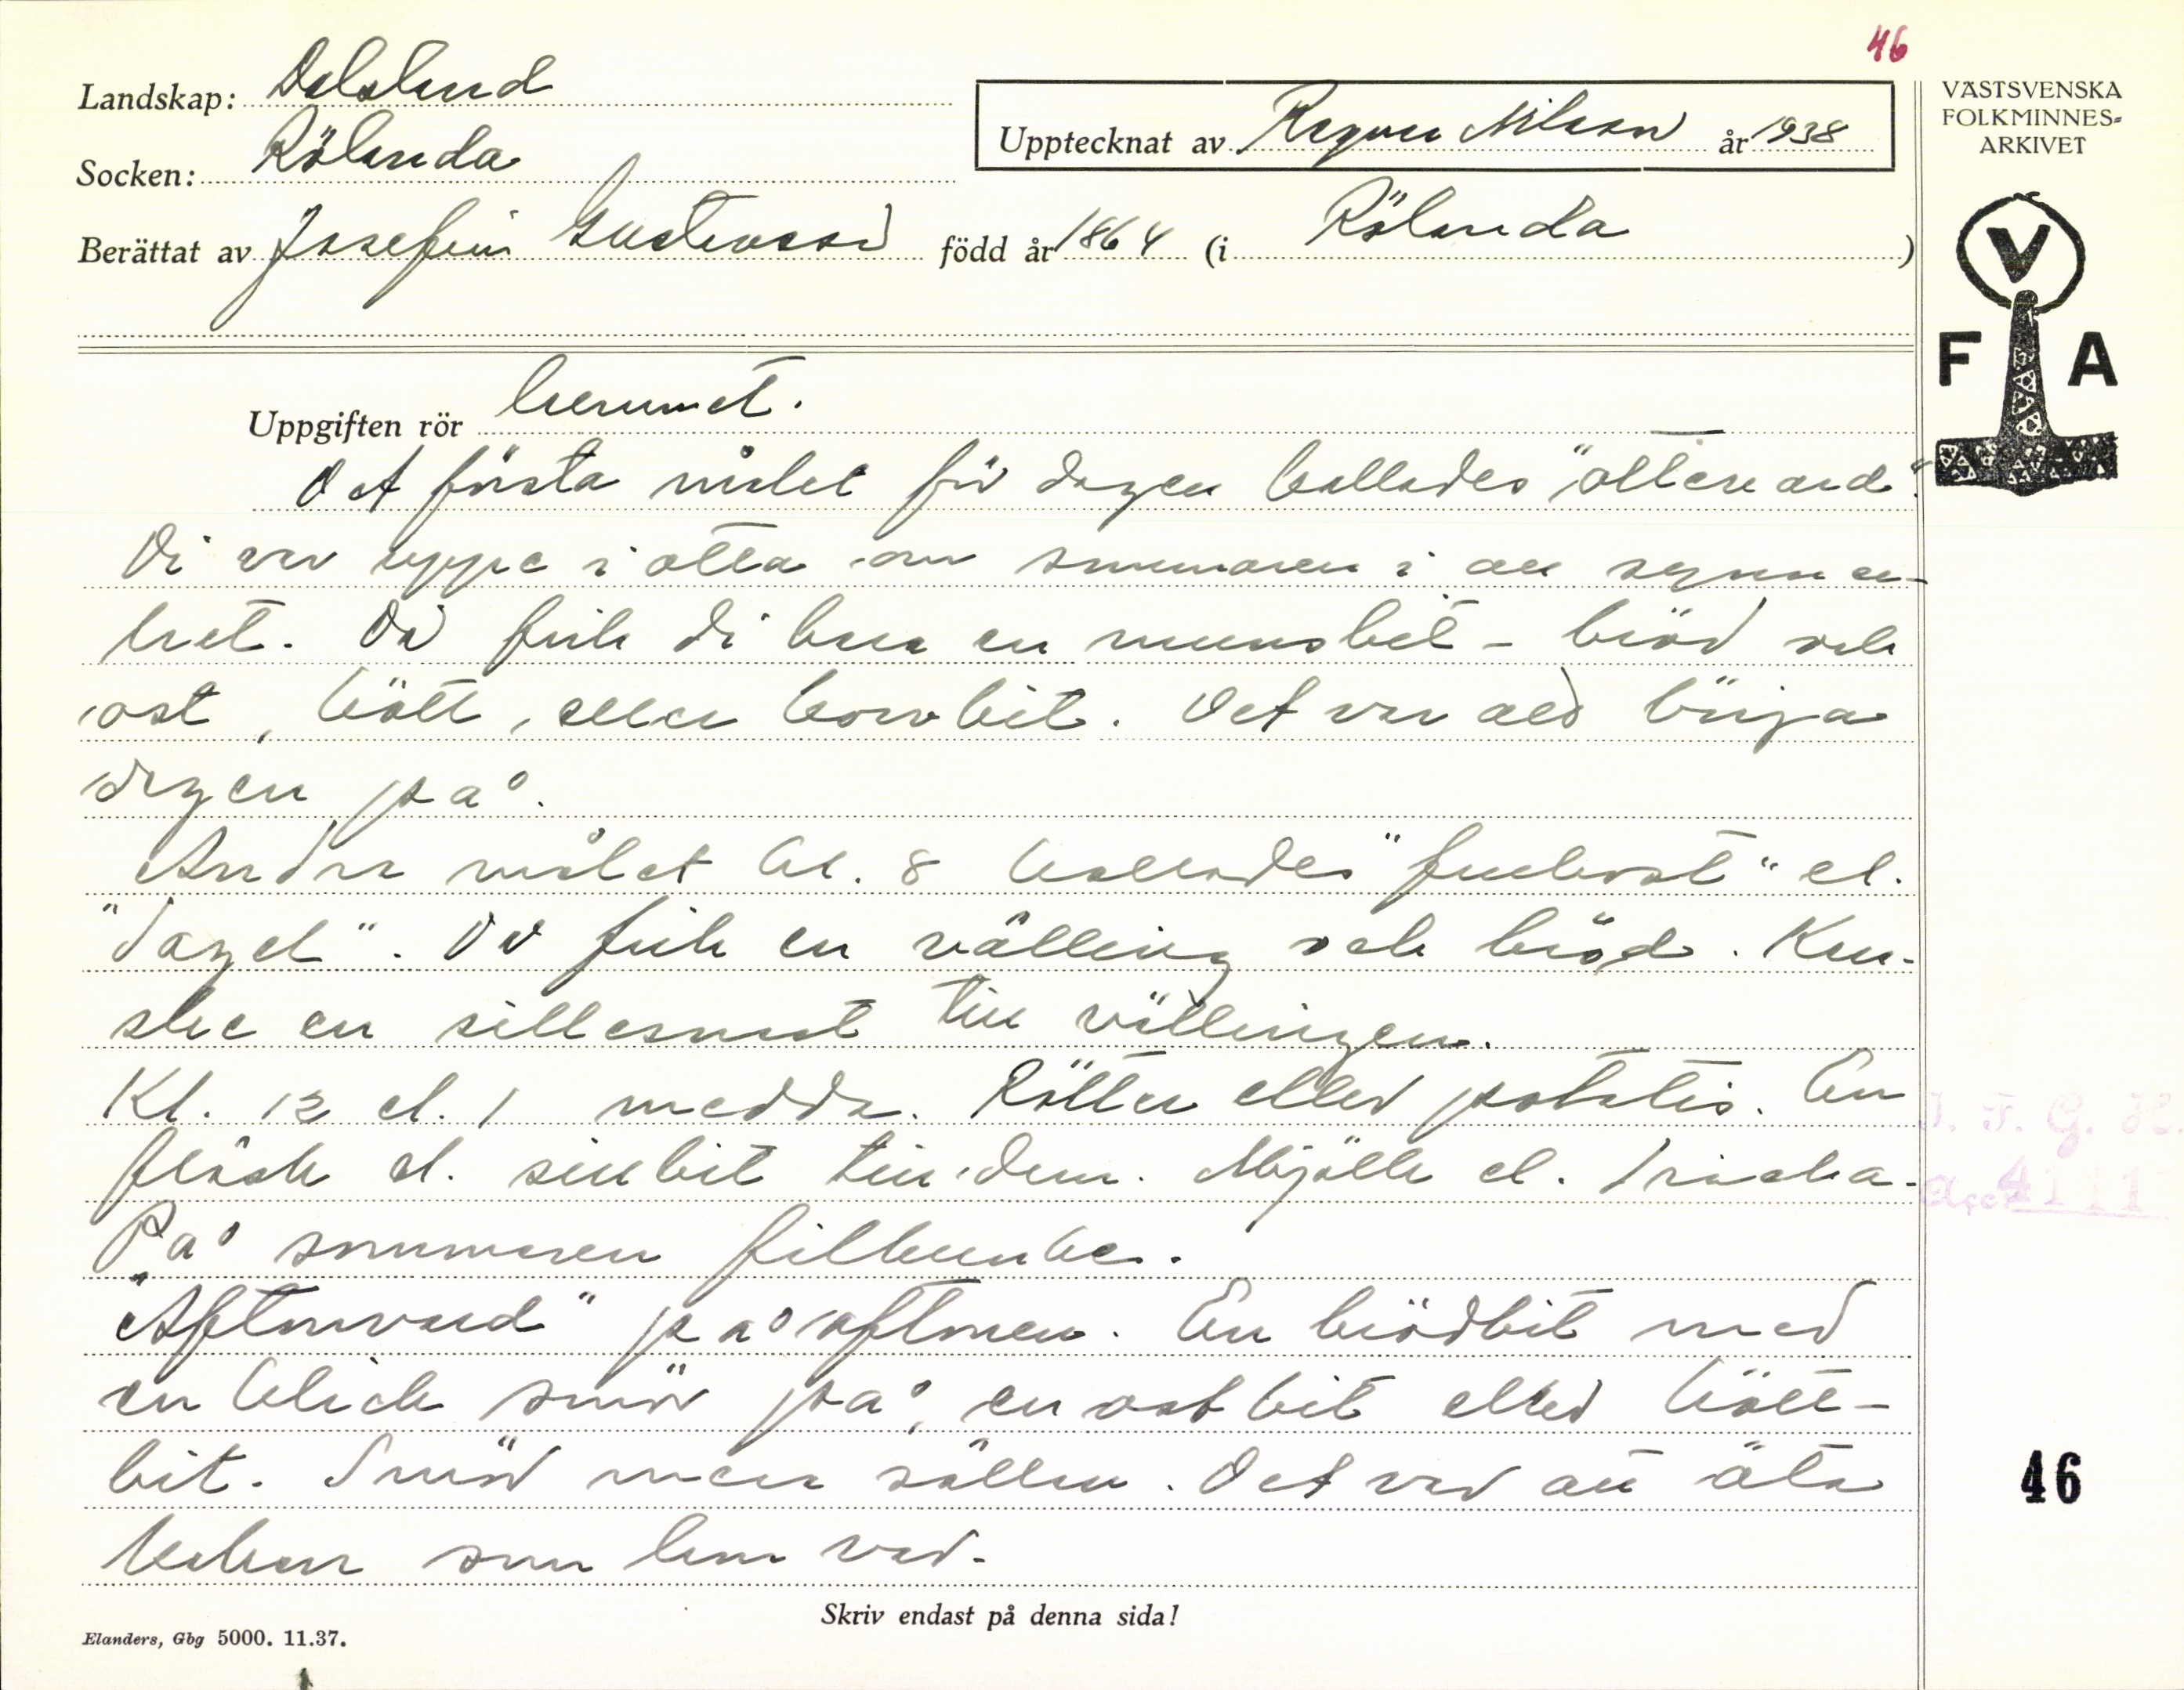 46
Landskap: Dalsland
Socken: Rölanda
Upptecknat av Ragnar Nilsson år 1938
VÄSTSVENSKA
FOLKMINNES-
ARKIVET
Berättat av Josefin Gustavsson född år 1864 (i Rölanda)
V
F A
Uppgiften rör hemmet.
Det första målet för dagen kallades "åttenard".
Di var uppe i otta om sommaren i all synner-
het. Då fick di bara en munsbet - bröd och
ost, kött, eller korvbit. Det var att börja
dagen på.
Andra målet kl. 8 kallades "frukost" el.
"dagel". Då fick en välling och bröd. Kan-
ske en sillesnatt till vällingen.
Kl. 12 el. 1 medda. Rötter eller potatis. En
fläsk el. sillbit till dem. Mjölk el. dricka.
På sommaren filbunke.
"Aftonvard" på aftonen. En brödbit med
en klick smör på, en ostbit eller kött-
bit. Smör men sällan. Det var att äta
kakan som hon var.
J. F. G. H.
acc. 4111
46
Skriv endast på denna sida!
Elanders, Gbg 5000. 11.37.